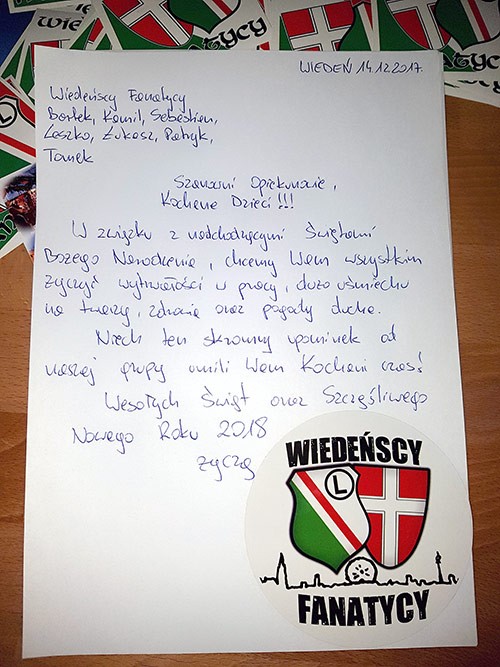 WIEDEŃ 14.12.2017.
Wiedeńscy Fanatycy
Bartek, Kamil, Sebastian,
Leszko, Łukasz, Patryk,
Tomek
Szanowni Opiekunowie,
Kochane Dzieci!!!
W związku z nadchodzącymi Świętami
Bożego Narodzenia, chcemy Wam wszystkim
życzyć wytrwałości w pracy, dużo uśmiechu
na twarzy, zdrowia oraz pogody ducha.
Niech ten skromny upominek od
naszej grupy umili Wam Kochani czas!
Wesołych Świąt oraz Szczęśliwego
Nowego Roku 2018
życzą
WIEDEŃSCY
L
FANATYCY